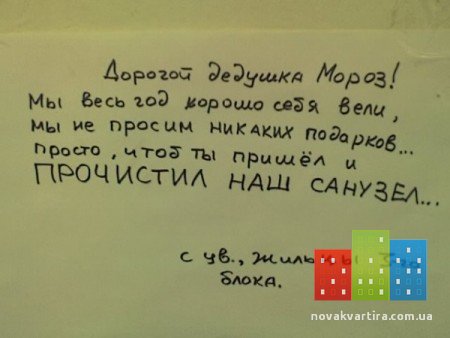 Дорогой дедушка Мороз!
Мы весь год хорошо себя вели,
мы не просим никаких подарков...
просто, чтоб ты пришёл и
ПРОЧИСТИЛ НАШ САНУЗЕЛ...
с ув.,
блока.
novakvartira.com.ua